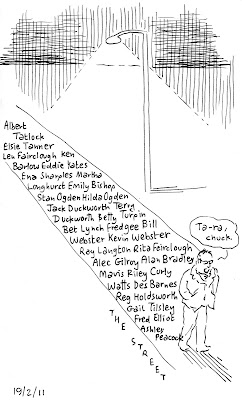 Albert
Tatlock
Elsie Tanner
Len Fairclough Ken
Barlow Eddie Yates
Ena Sharples Martha
Longhurst Emily Bishop
Stan Ogden Hilda Ogden
Jack Duckworth Terry
Duckworth Betty Turpin
Bet Lynch Fredgee Bill
Webster Kevin Webster
Ray Langton Rita Fairclough
Alec Gilroy Alan Bradley
Mavis Riley Curly
Watts Des Barnes
Reg Holdsworth
Gail Tilsley
Fred Elliot
Ashley
Peacock
THE STREET
Ta-ra,
chuck.
19/2/11